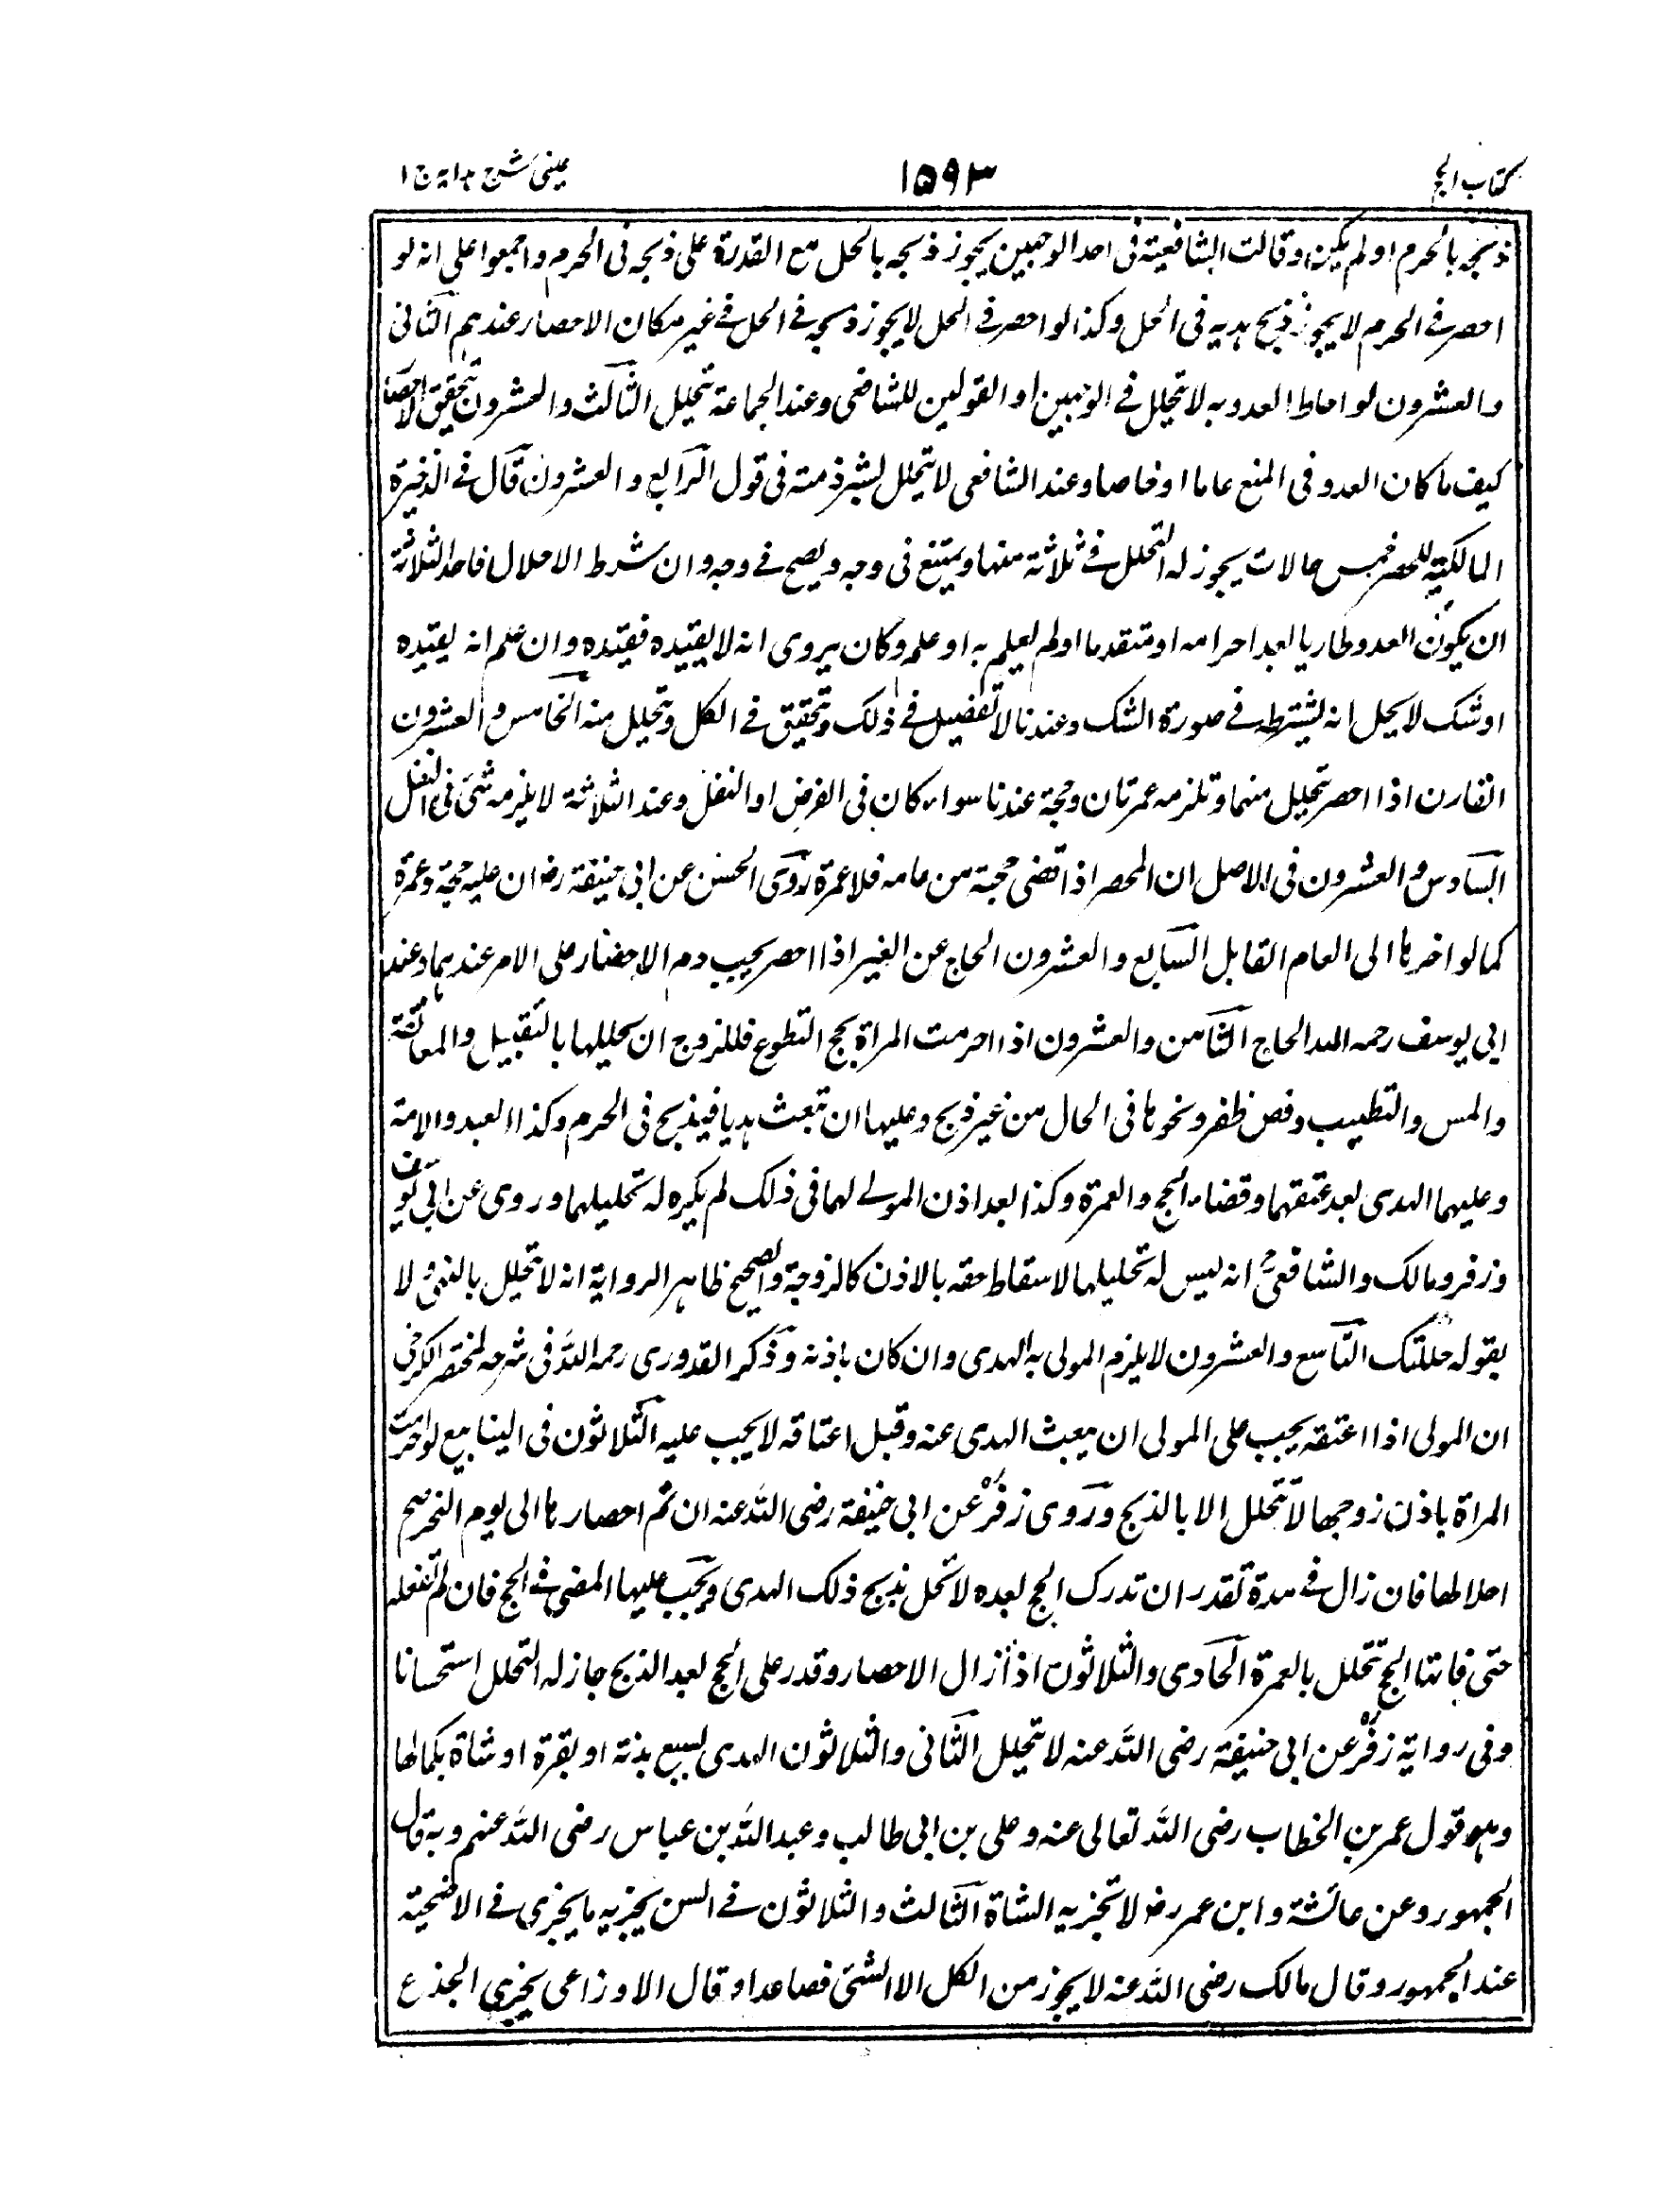 كتاب الحج
١٥٩٣
عينى شرح هداية ج ١
ذبحه بالحرم او لم يكن وقالت الشافعية فى احد الوجهين يجوز ذبحه بالحل مع القدرة على ذبحه فى الحرم واجمعوا على انه لو
احصر فے الحرم لا يجوز ذبح هديه فى الحل وكذا لو احصر فے الحل لا يجوز ذبحه فے الحل فے غير مكان الاحصار عندهم الثانى
والعشرون لو احاط العدو به لا تحلل فے الوجهين او القولين للشافعى وعند الجماعة تحلل الثالث والعشرون تحقيق الاحصار
كيف ما كان العدو فى المنع عاما او خاصا وعند الشافعى لا يتحلل لشرذمته فى قول الرابع والعشرون قال فے الذخيرة
المالكية للمحصر خمس حالات يجوز له التحلل فے ثلاثة منها ويمتنع فى وجه ويصح فے وجه وان شرط الاحلال فاحد الثلاثة
ان يكون العدو طاريا بعد احرامه او متقدما اولم يعلم به او علم وكان يروى انه لا يقيده فقيده وان علم انه يقيده
او شك لا يحل انه يشترط فے صورة الشك وعندنا لا تفصيل فے ذلك وتحقيق فے الكل وتحلل منه الخامس والعشرون
القارن اذا احصر تحلل منهما وتلزمه عمرتان وحجة عندنا سواء كان فى الفرض او النفل وعند الثلاثة لا يلزمه شئ فى النفل
السادس والعشرون فى الاصل ان المحصر اذا قضى حجته من عامه فلا عمرة روى الحسن عن ابى حنيفة رض ان عليه حجة وعمرة
كما لو اخرها الى العام القابل السابع والعشرون الحاج عن الغير اذا احصر يجب دم الاحصار على الامر عندهما وعند
ابى يوسف رحمه الله الحاج الثامن والعشرون اذا احرمت المراة بحج التطوع فللزوج ان يحللها بالتقبيل والمعانقة
والمس والتطييب وقص ظفر ونحوها فى الحال من غير ذبح وعليها ان تبعث هديا فيذبح فى الحرم وكذا العبد والامة
وعليهما الهدى بعد عتقهما وقضاء الحج والعمرة وكذا بعد اذن المولے لهما فى ذلك لم يكره له تحليلهما وروى عن ابى يوسف
وزفر ومالك والشافعى انه ليس له تحليلها لاسقاط حقه بالاذن كالزوجة والصحيح ظاهر الرواية انه لا تحلل بالنهى ولا
بقوله حللتك التاسع والعشرون لا يلزم المولى به الهدى وان كان باذنه وذكر القدورى رحمه الله فى شرحه لمختصر الكرخى
ان المولى اذا اعتقه يجب على المولى ان يبعث الهدى عنه وقبل اعتاقه لا يجب عليه الثلاثون فى الينابيع لو احرمت
المراة باذن زوجها لا تتحلل الا بالذبح وروى زفر عن ابى حنيفة رضى الله عنه ان تم احصارها الى يوم النحر صح
احلالها فان زال فے مدة تقدر ان تدرك الحج بعده لا تحل بذبح ذلك الهدى ويجب عليها المضى فے الحج فان لم تفعله
حتى فاتها الحج تتحلل بالعمرة الحادى والثلاثون اذا زال الاحصار وقدر على الحج بعد الذبح جاز له التحلل استحسانا
وفى رواية زفر عن ابى حنيفة رضى الله عنه لا تحلل الثانى والثلاثون الهدى لسبع بدنة او بقرة او شاة بكمالها
وهو قول عمر بن الخطاب رضى الله تعالى عنه وعلى بن ابى طالب وعبد الله بن عباس رضى الله عنهم وبه قال
الجمهور وعن عائشة وابن عمر رض لا تجزيه الشاة الثالث والثلاثون فے السن يجزيه ما يجزى فے الاضحية
عند الجمهور وقال مالك رضى الله عنه لا يجوز من الكل الا الثنى فصاعدا وقال الاوزاعى يجزى الجذع